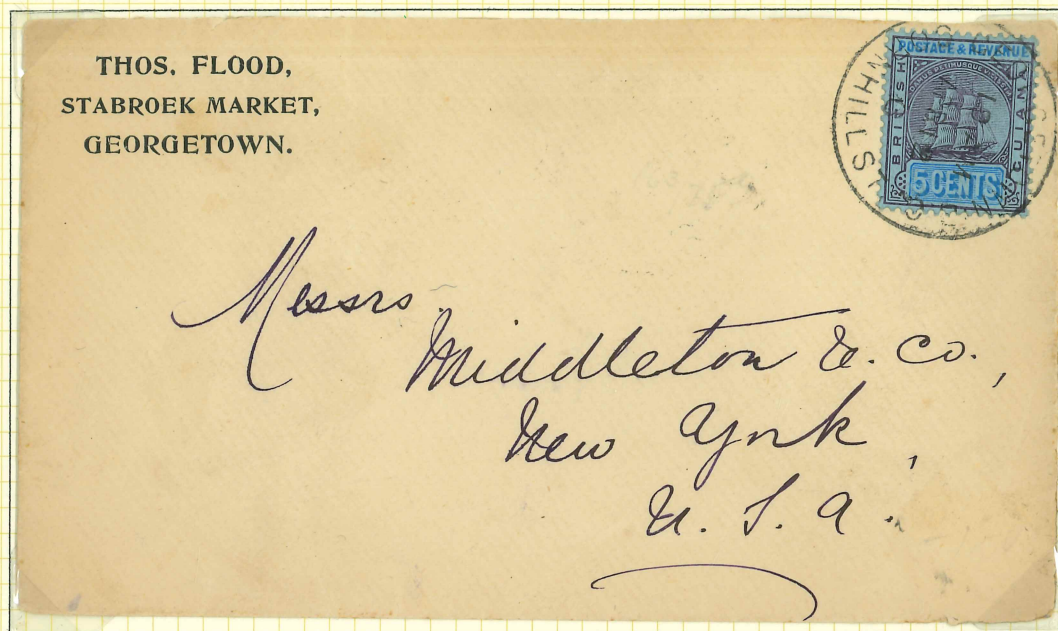 THOS. FLOOD,
STABROEK MARKET,
GEORGETOWN.
POSTAGE & REVENUE
BRITISH
GUIANA
5 CENTS
Messrs.
Middleton & Co.,
New York,
U. S. A.